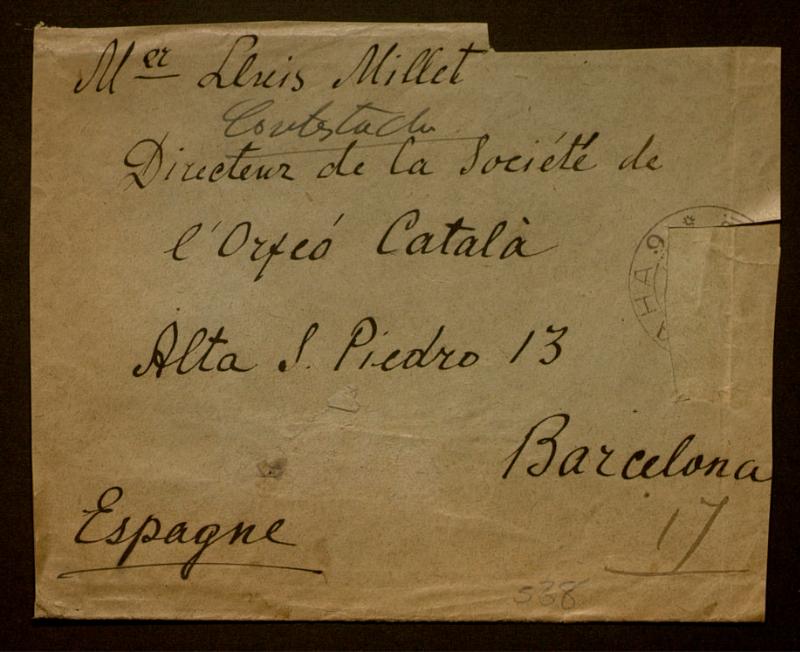 Mer Lluis Millet
Contestada
Directeur de la Société de
l'Orfeó Català
Alta S. Piedro 13
Barcelona
Espagne
17
538